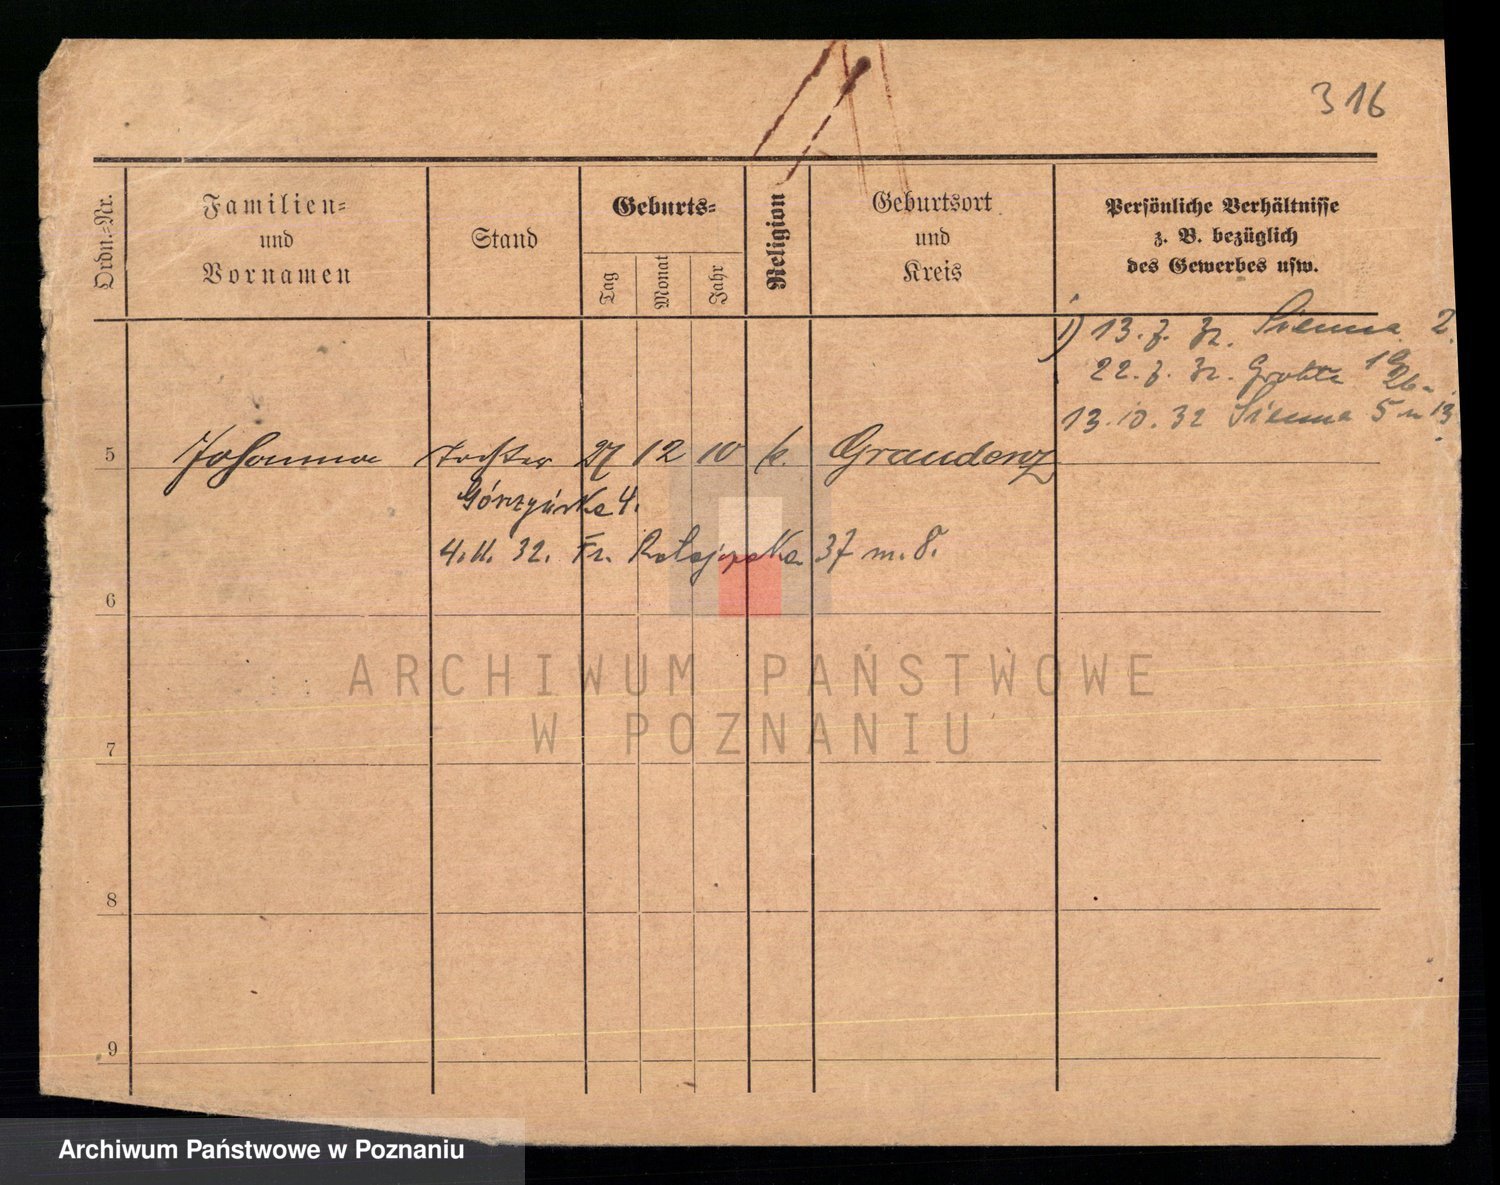 316
Ordn.-Nr.
Familien-
und
Vornamen
Stand
Geburts-
Tag
Monat
Jahr
Religion
Geburtsort
und
Kreis
Persönliche Verhältnisse
z. B. bezüglich
des Gewerbes usw.
1) 13. 7. 32. Sienna 2.
22. 7. 32. Grobla
13.10.32 Sienna 5 m 13
5 Johanna Tochter 27 12 10 k. Graudenz
4.
4.11.32. Fr. Ratajczaka 37 m. 8.
6
7
8
9
ARCHIWUM PAŃSTWOWE
W POZNANIU
Archiwum Państwowe w Poznaniu